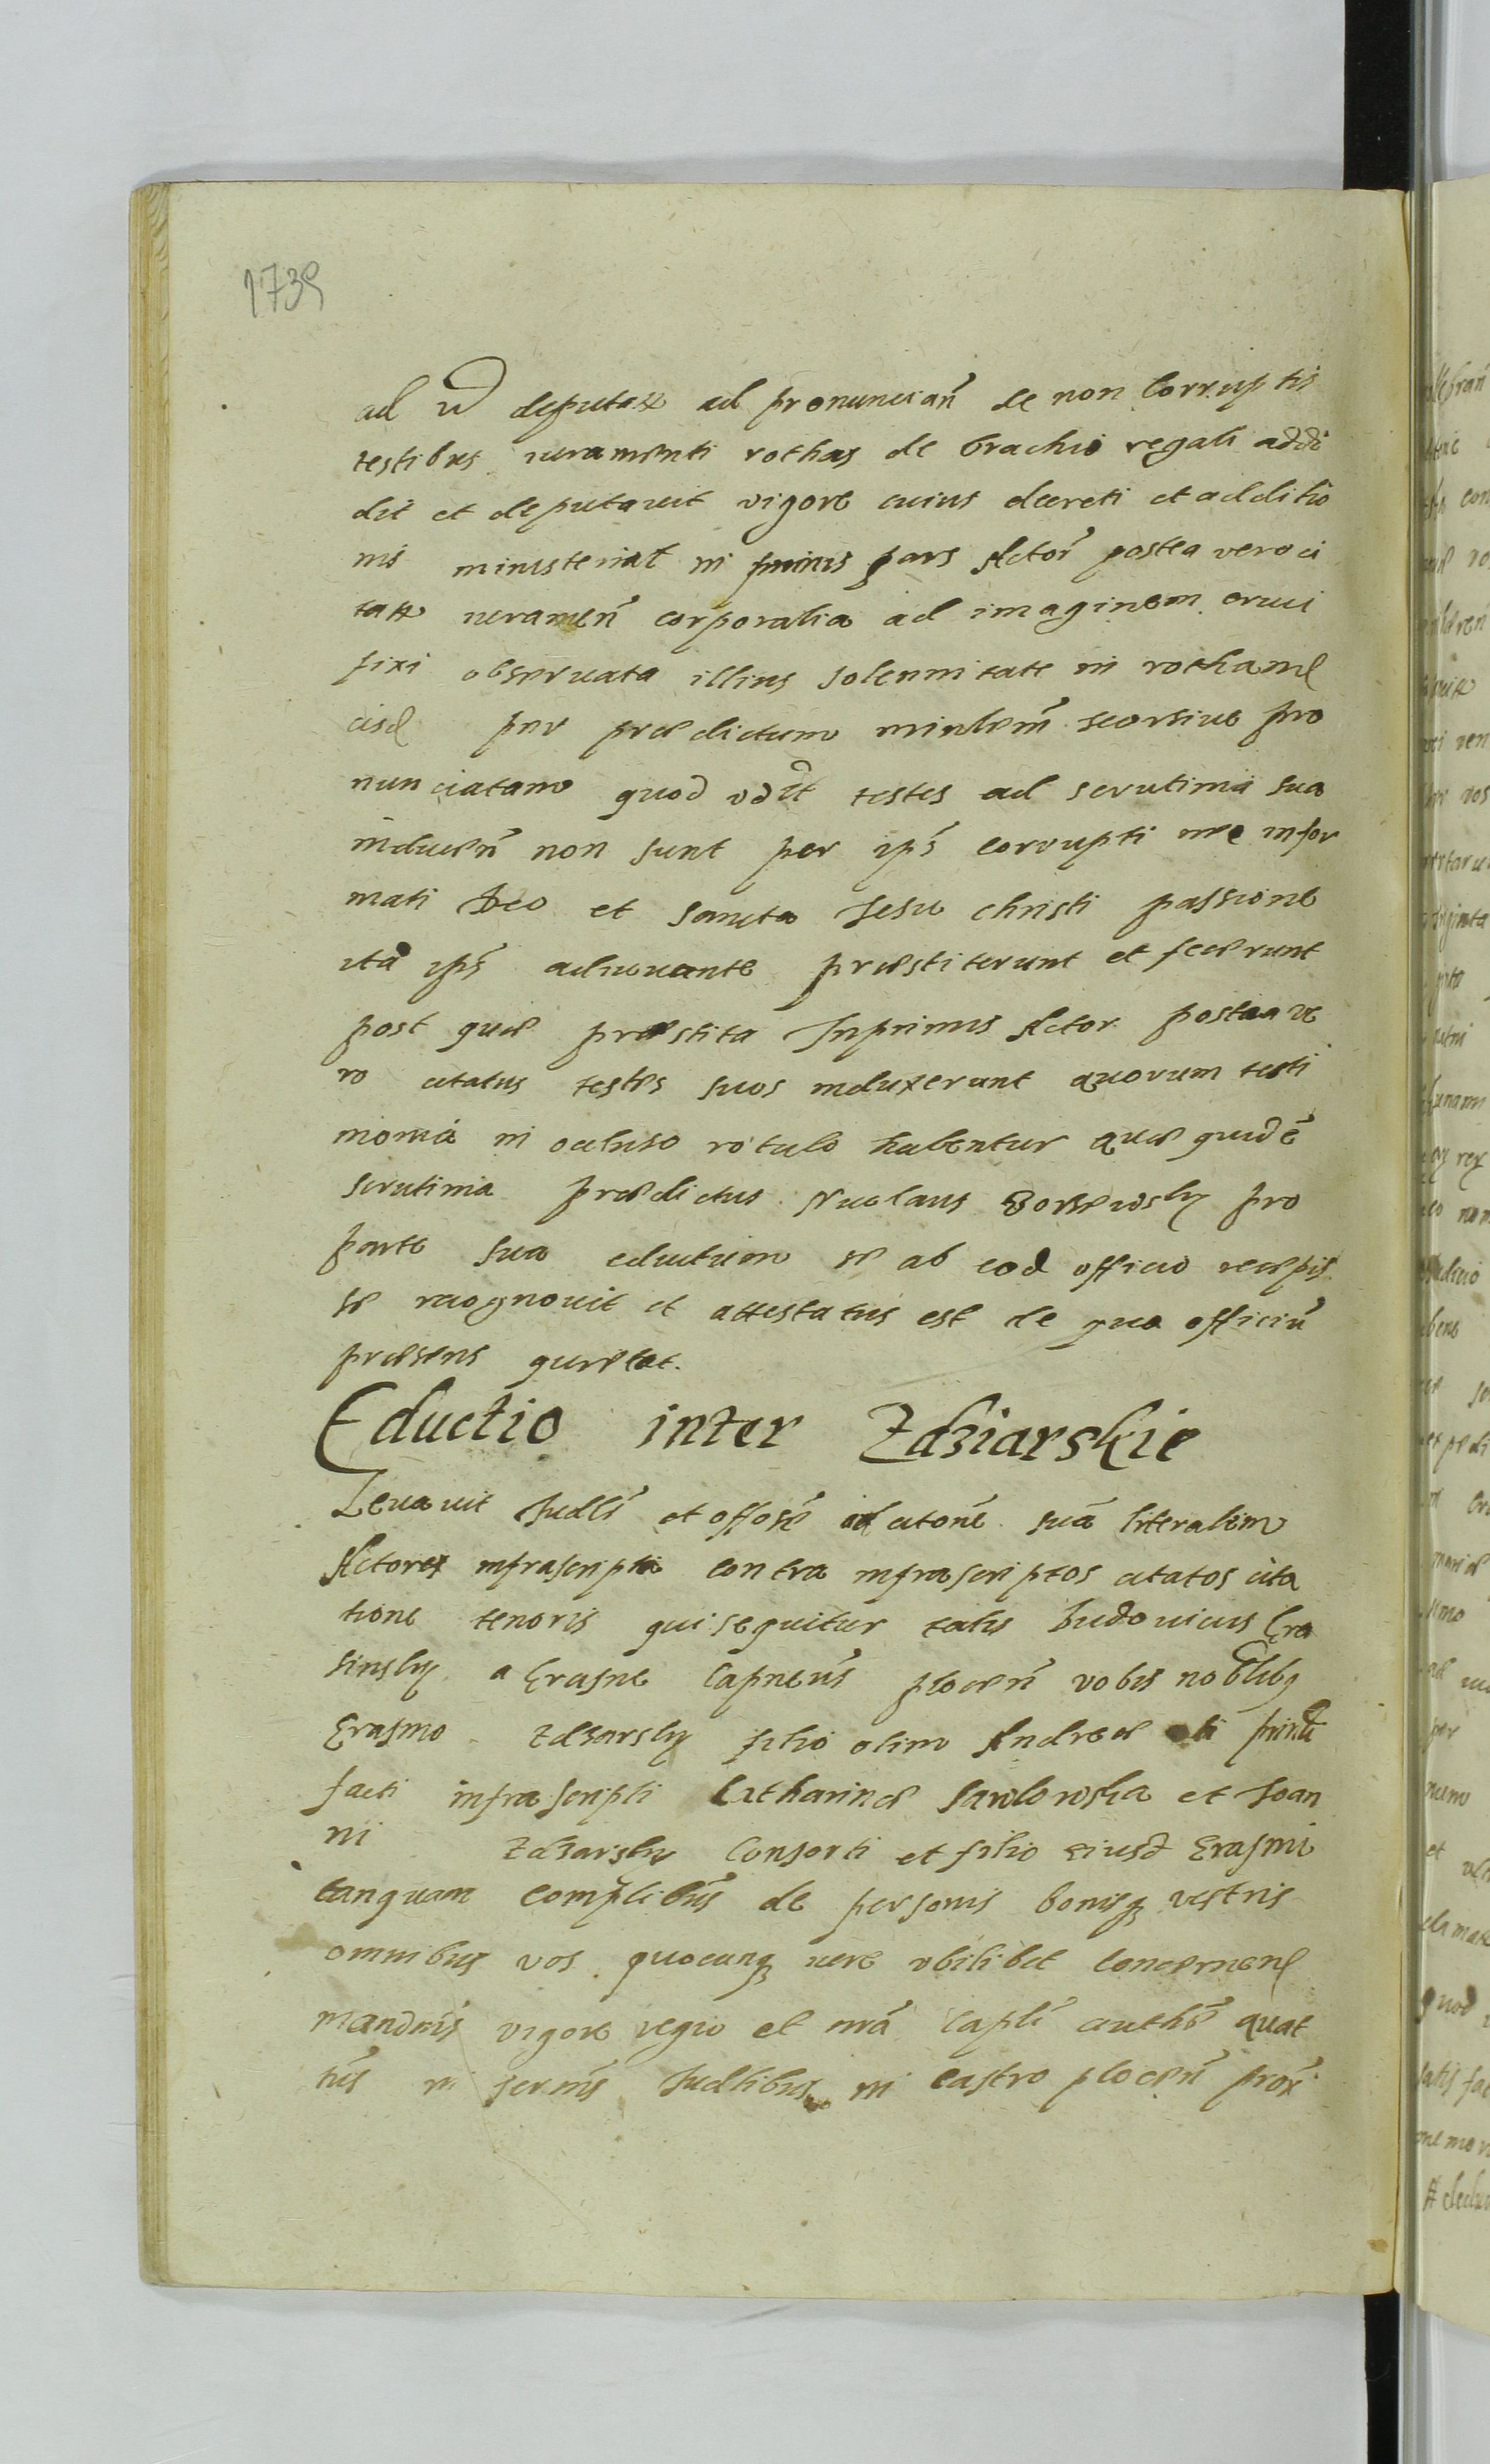 1739
ad id deputatae ad pronuncian̄ de non Corruptis
testibus iuramenti rothas de brachio regali addi
dit et deputauit vigore cuius decreti et additio
nis ministerial in primis pars Actor̄ postea vero ci
tatae iuramen̄ corporalia ad imaginem cruci
fixi obseruata illius solennitate in rotham
eisd per praedictum minlem̄ seorsiue pro
nunciatam quod testes ad scrutinia sua
inducen̄ non sunt per ip̄s corrupti nec infor
mati Deo et sancta Jesu christi passione
ita ip̄s adiuuante praestiterunt et fecerunt
post quae praestita Inprimis Actor postea ve
ro citatus testes suos induxerunt quorum testi
monia in ocluso rotulo habentur quae quidē
scrutinia praedictus Nicolaus Borzewsky pro
parte sua eductum se ab eod officio recepis
se recognouit et attestatus est de quo officiū
praesens quietat.
Eductio inter Zdziarskie
Leuauit Judl̄ et offose ad citonē suā literalem
Actorex infrascripta contra infrascriptos citatos cita
tione tenoris qui sequitur talis Ludouicus Cra
sinsky a Crasne Capneus̄ plocen̄ vobis noblibq
Erasmo Zdzarsky filio olim Andreae
facti infrascripti Catharinae et Joan
ni Zdzarsky Consorti et filio eiusd Erasmi
tanquam complibus̄ de personis bonisq vestris
omnibus vos quocunq iure vbilibet concernen
mandnis vigore regio et mā Capli authē quat
tūs in termīs Judlibus in castro plocen̄ prox̄